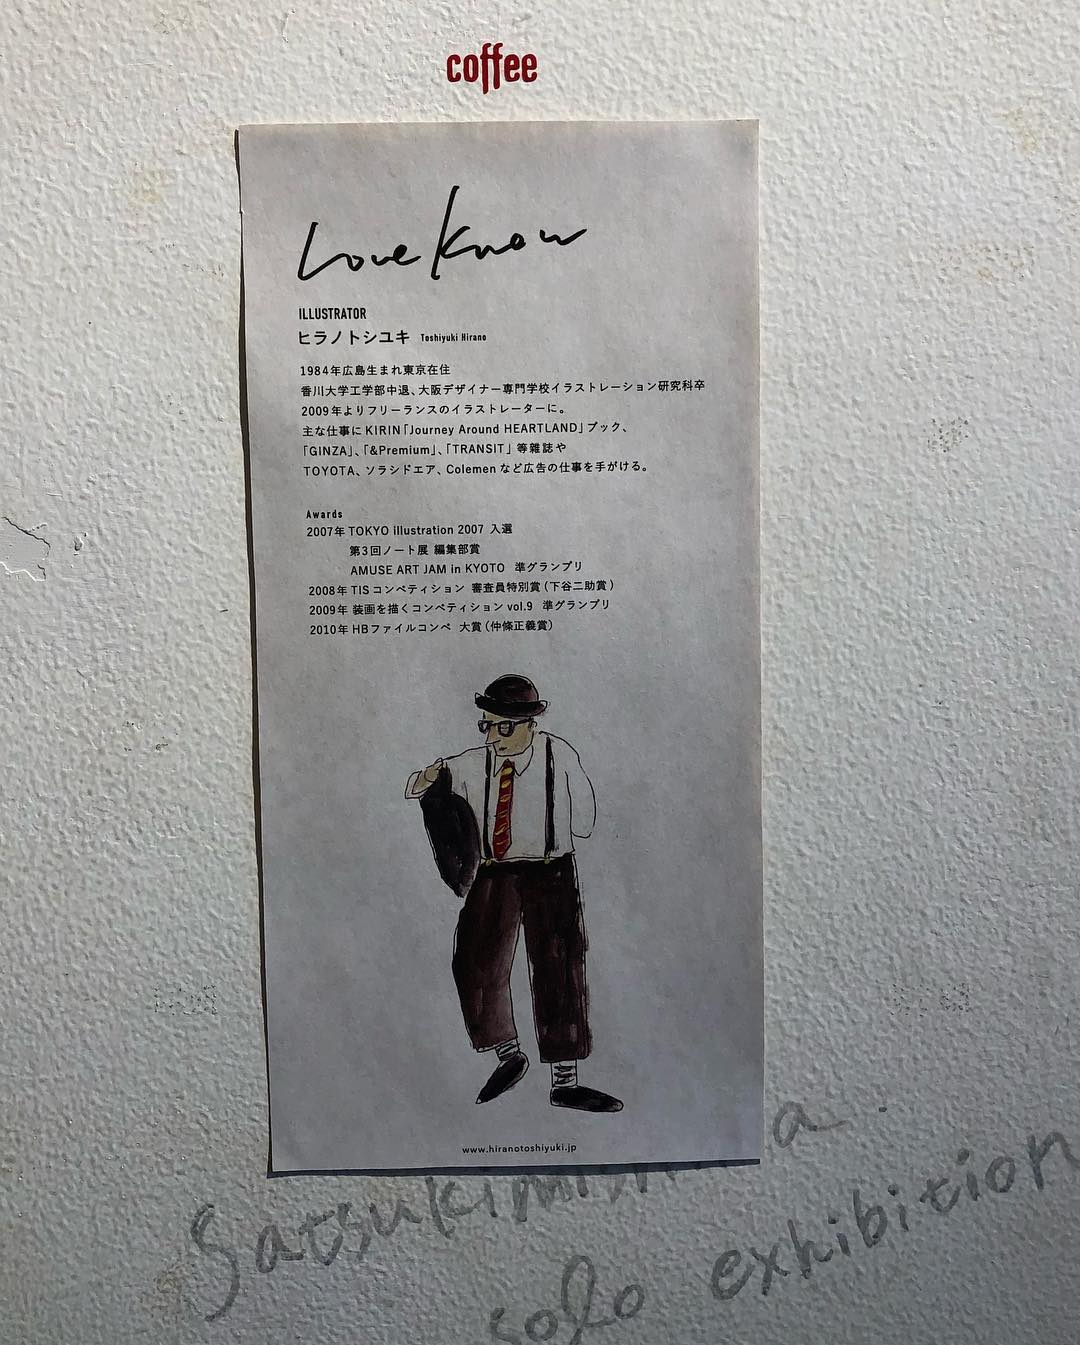 coffee
Love Know
ILLUSTRATOR
ヒラノトシユキ Toshiyuki Hirano
1984年広島生まれ東京在住
香川大学工学部中退、大阪デザイナー専門学校イラストレーション研究科卒
2009年よりフリーランスのイラストレーターに。
主な仕事にKIRIN「Journey Around HEARTLAND」ブック、
「GINZA」、「&Premium」、「TRANSIT」等雑誌や
TOYOTA、ソラシドエア、Colemenなど広告の仕事を手がける。
Awards
2007年 TOKYO illustration 2007 入選
第3回ノート展 編集部賞
AMUSE ART JAM in KYOTO 準グランプリ
2008年 TISコンペティション 審査員特別賞(下谷二助賞)
2009年 装画を描くコンペティション vol.9 準グランプリ
2010年 HBファイルコンペ 大賞(仲條正義賞)
www.hiranotoshiyuki.jp
solo exhibition